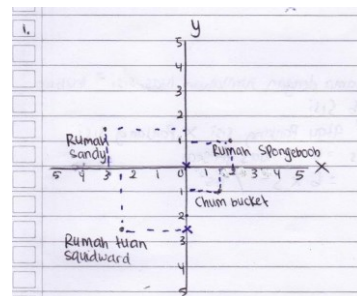 1.
y
5
4
3
2
1
Rumah
sandy
Rumah Spongebob
5 4 3 2 1 0 1 2 3 4 5 X
1
Chum bucket
2
Rumah tuan
squidward
3
4
5